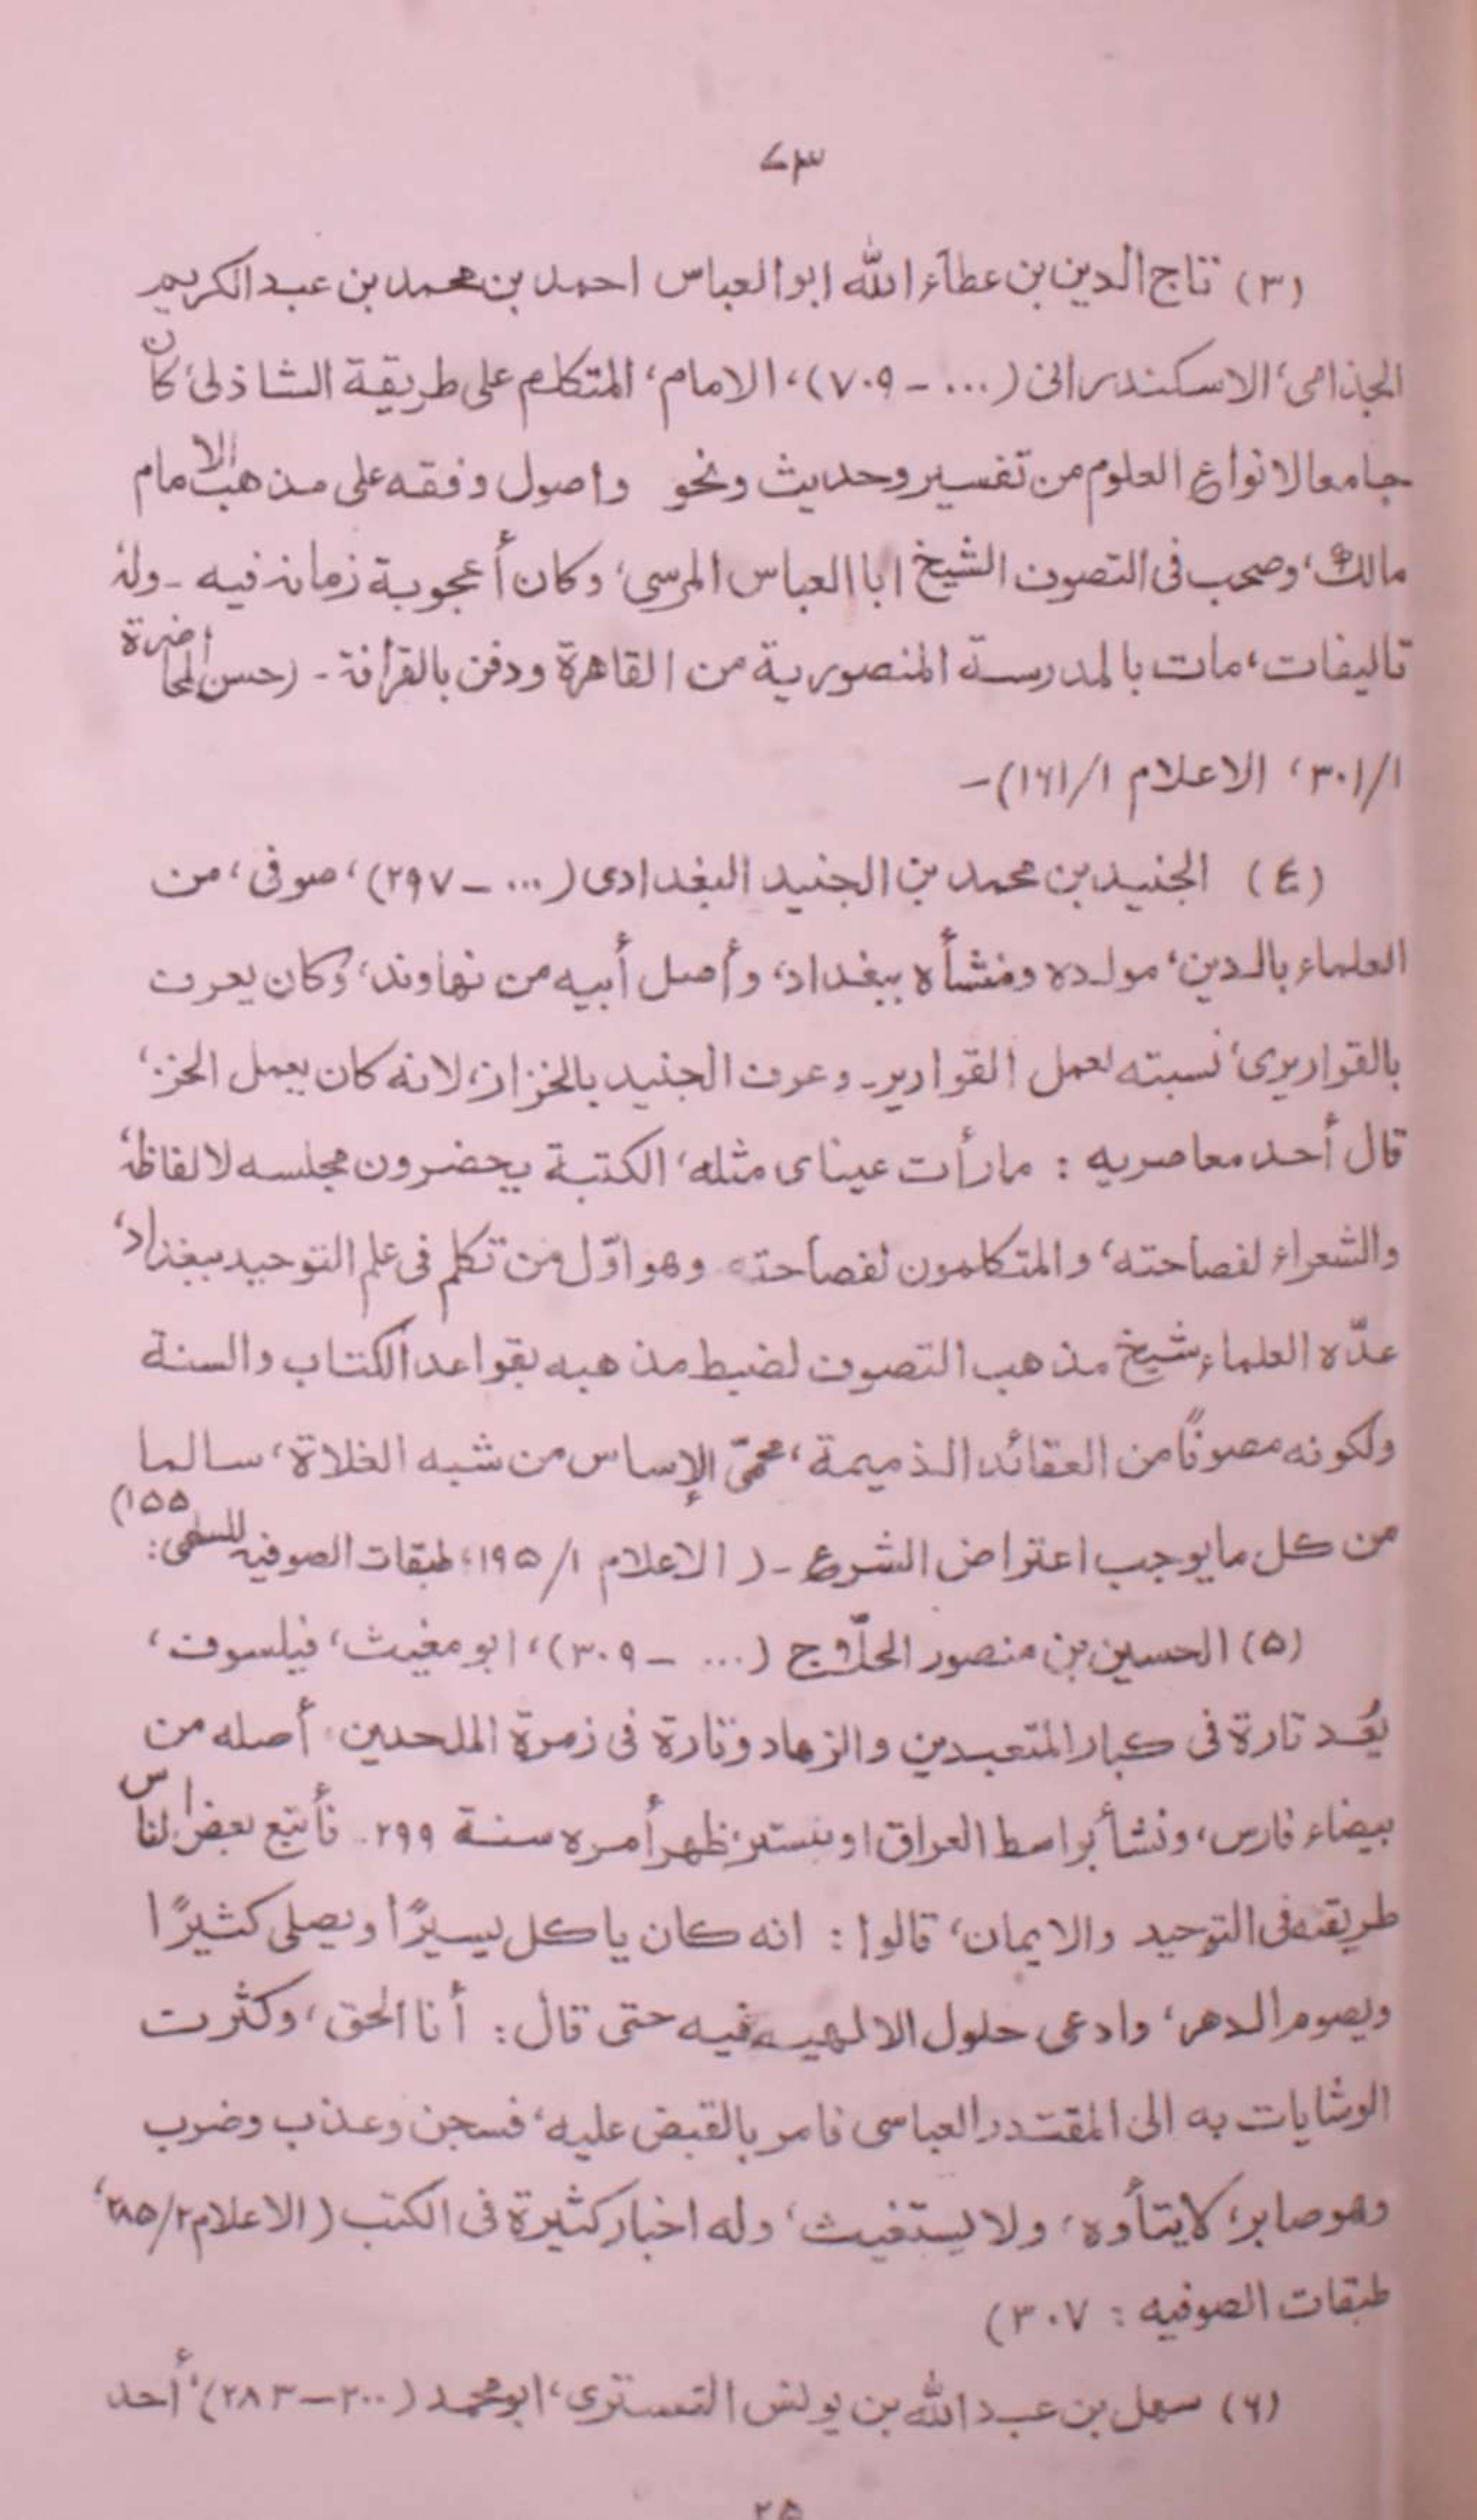 ۷۳
(۳) تاج الدين بن عطاء الله ابو العباس احمد بن محمد بن عبد الكريم
الجذامى، الاسكندرانى (... - ۷۰۹)، الامام، المتكلم على طريقة الشاذلى، كان
جامعا لانواع العلوم من تفسير وحديث ونحو واصول وفقه على مذهب الامام
مالك، وصحب فى التصوف الشيخ ابا العباس المرسى، وكان أعجوبة زمانه فيه - وله
تاليفات، مات بالمدرسة المنصورية من القاهرة ودفن بالقرافة - (حسن المحاضرة
۳۰۱/۱، الاعلام ۱/۱۶۱) -
(٤) الجنيد بن محمد بن الجنيد البغدادى (... - ۲۹۷)، صوفى، من
العلماء بالدين، مولده ومنشأه ببغداد، وأصل أبيه من نهاوند، وكان يعرف
بالقواريرى، نسبته لعمل القوارير - وعرف الجنيد بالخزاز، لانه كان يعمل الخز،
قال أحد معاصريه : مارأت عيناى مثله، الكتبة يحضرون مجلسه لالفاظه
والشعراء لفصاحته، والمتكلمون لفصاحته وهو اوّل من تكلم فى علم التوحيد ببغداد،
عدّه العلماء شيخ مذهب التصوف لضبط مذهبه بقواعد الكتاب والسنة
ولكونه مصونًا من العقائد الذميمة، محمّى الإساس من شبه الغلاة، سالما
من كل ما يوجب اعتراض الشرع - ( الاعلام ۱/ ۱۹۵، طبقات الصوفيه للسلمى: ۱۵۵)
(۵) الحسين بن منصور الحلّاج (... - ۳۰۹)، ابو مغيث، فيلسوف،
يُعد تارة فى كبار المتعبدين والزهاد وتارة فى زمرة الملحدين، أصله من
بيضاء فارس، ونشأ بواسط العراق او بتستر، ظهر أمره سنة ۲۹۹. فأتبع بعض الناس
طريقته فى التوحيد والايمان، قالوا : انه كان ياكل يسيرًا ويصلى كثيرًا
ويصوم الدهر، وادعى حلول الالهيه فيه حتى قال : أنا الحق، وكثرت
الوشايات به الى المقتدر العباسى فامر بالقبض عليه، فسجن وعذب وضرب
وهو صابر، لايتأوه، ولا يستغيث، وله اخبار كثيرة فى الكتب ( الاعلام ۲/۲۸۵،
طبقات الصوفيه : ۳۰۷)
(۶) سهل بن عبد الله بن يونس التسترى، ابو محمد (۲۰۰ – ۲۸۳)، أحد
۲۵